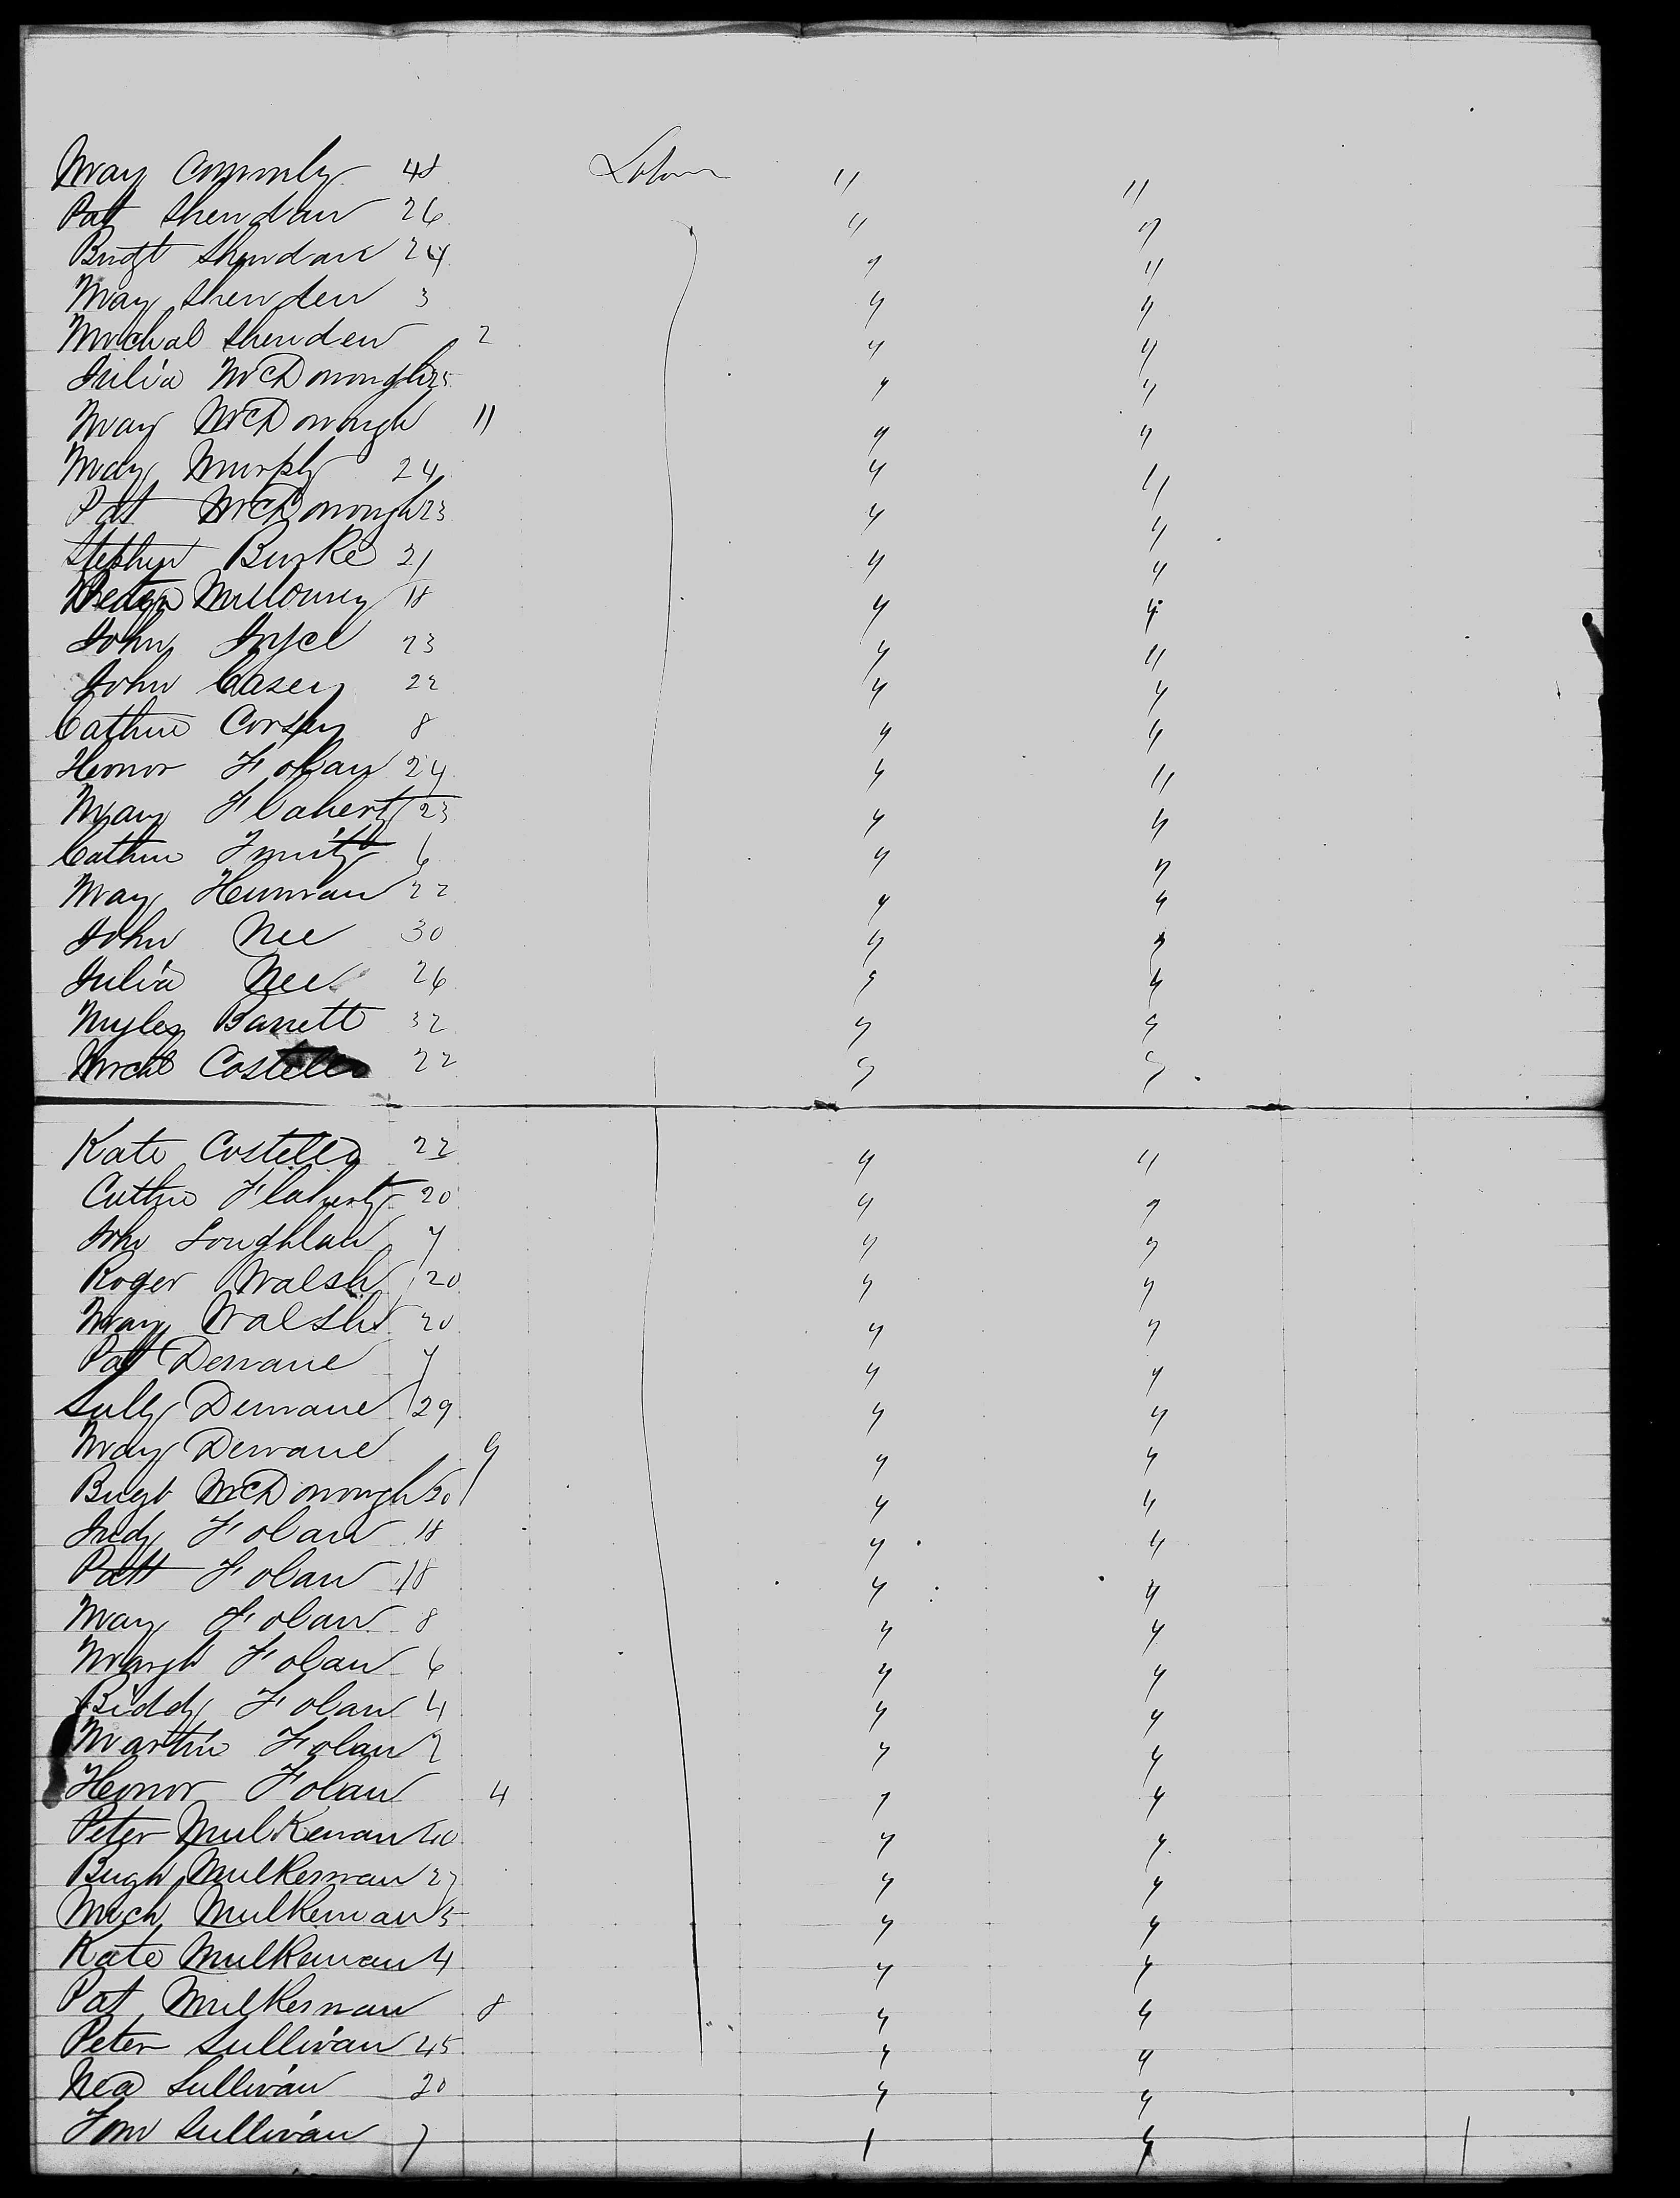 May Connoly 48 Labour " "
Pat Sheridan 26 " "
Bridgt Sheridan 24 " "
May Sheriden 3 " "
Michal Sheriden 2 " "
Julia McDonough 25 " "
May McDonough 11 " "
May Murphy 24 " "
Pat McDonough 23 " "
Stephen Burke 21 " "
18 " "
John Joyce 23 " "
John Casey 22 " "
Cathne 8 " "
Honor Folan 24 " "
Mary Flaherty 23 " "
Cathne 6 " "
May 22 " "
John Nee 30 " "
Julia Nee 26 " "
Myles Barrett 32 " "
Michl Costello 22 " "
Kate Costello 22 " "
Cathne Flaherty 20 " "
John Loughlan 7 " "
Roger Walsh 20 " "
May Walsh 20 " "
Pat Derrane 7 " "
Sally Derrane 29 " "
May Derrane 9 " "
Bidgt McDonough 50 " "
Judy Folan 18 " "
Patt Folan 18 " "
May Folan 8 " "
Margt Folan 6 " "
Biddy Folan 4 " "
Martin Folan 2 " "
Honor Folan 4 " "
Peter Mulkernan 40 " "
Bidgt Mulkernan 27 " "
Mich Mulkernan 5 " "
Kate Mulkernan 4 " "
Pat Mulkernan 8 " "
Peter Sullivan 45 " "
Nea Sullivan 20 " "
Tom Sullivan 7 " "